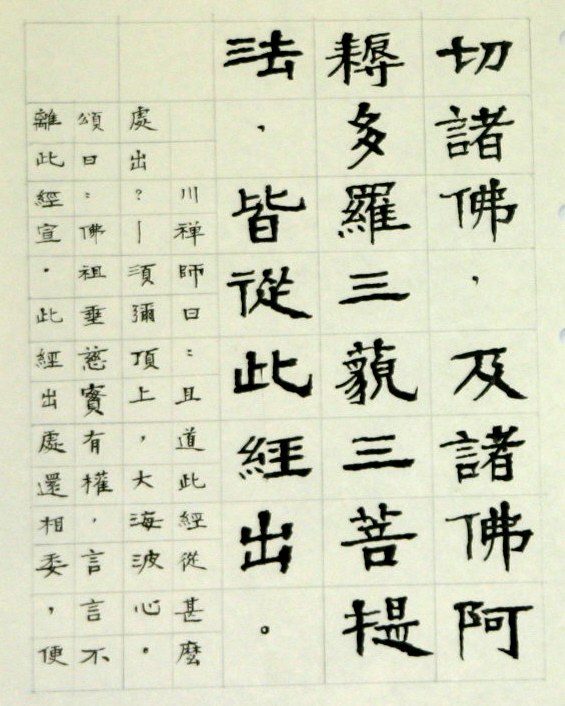 切諸佛，及諸佛阿
耨多羅三藐三菩提
法，皆從此經出。
川禪師曰：且道此經從甚麼
處出？｜須彌頂上，大海波心。
頌曰：佛祖垂慈實有權，言言不
離此經宣。此經出處還相委，便